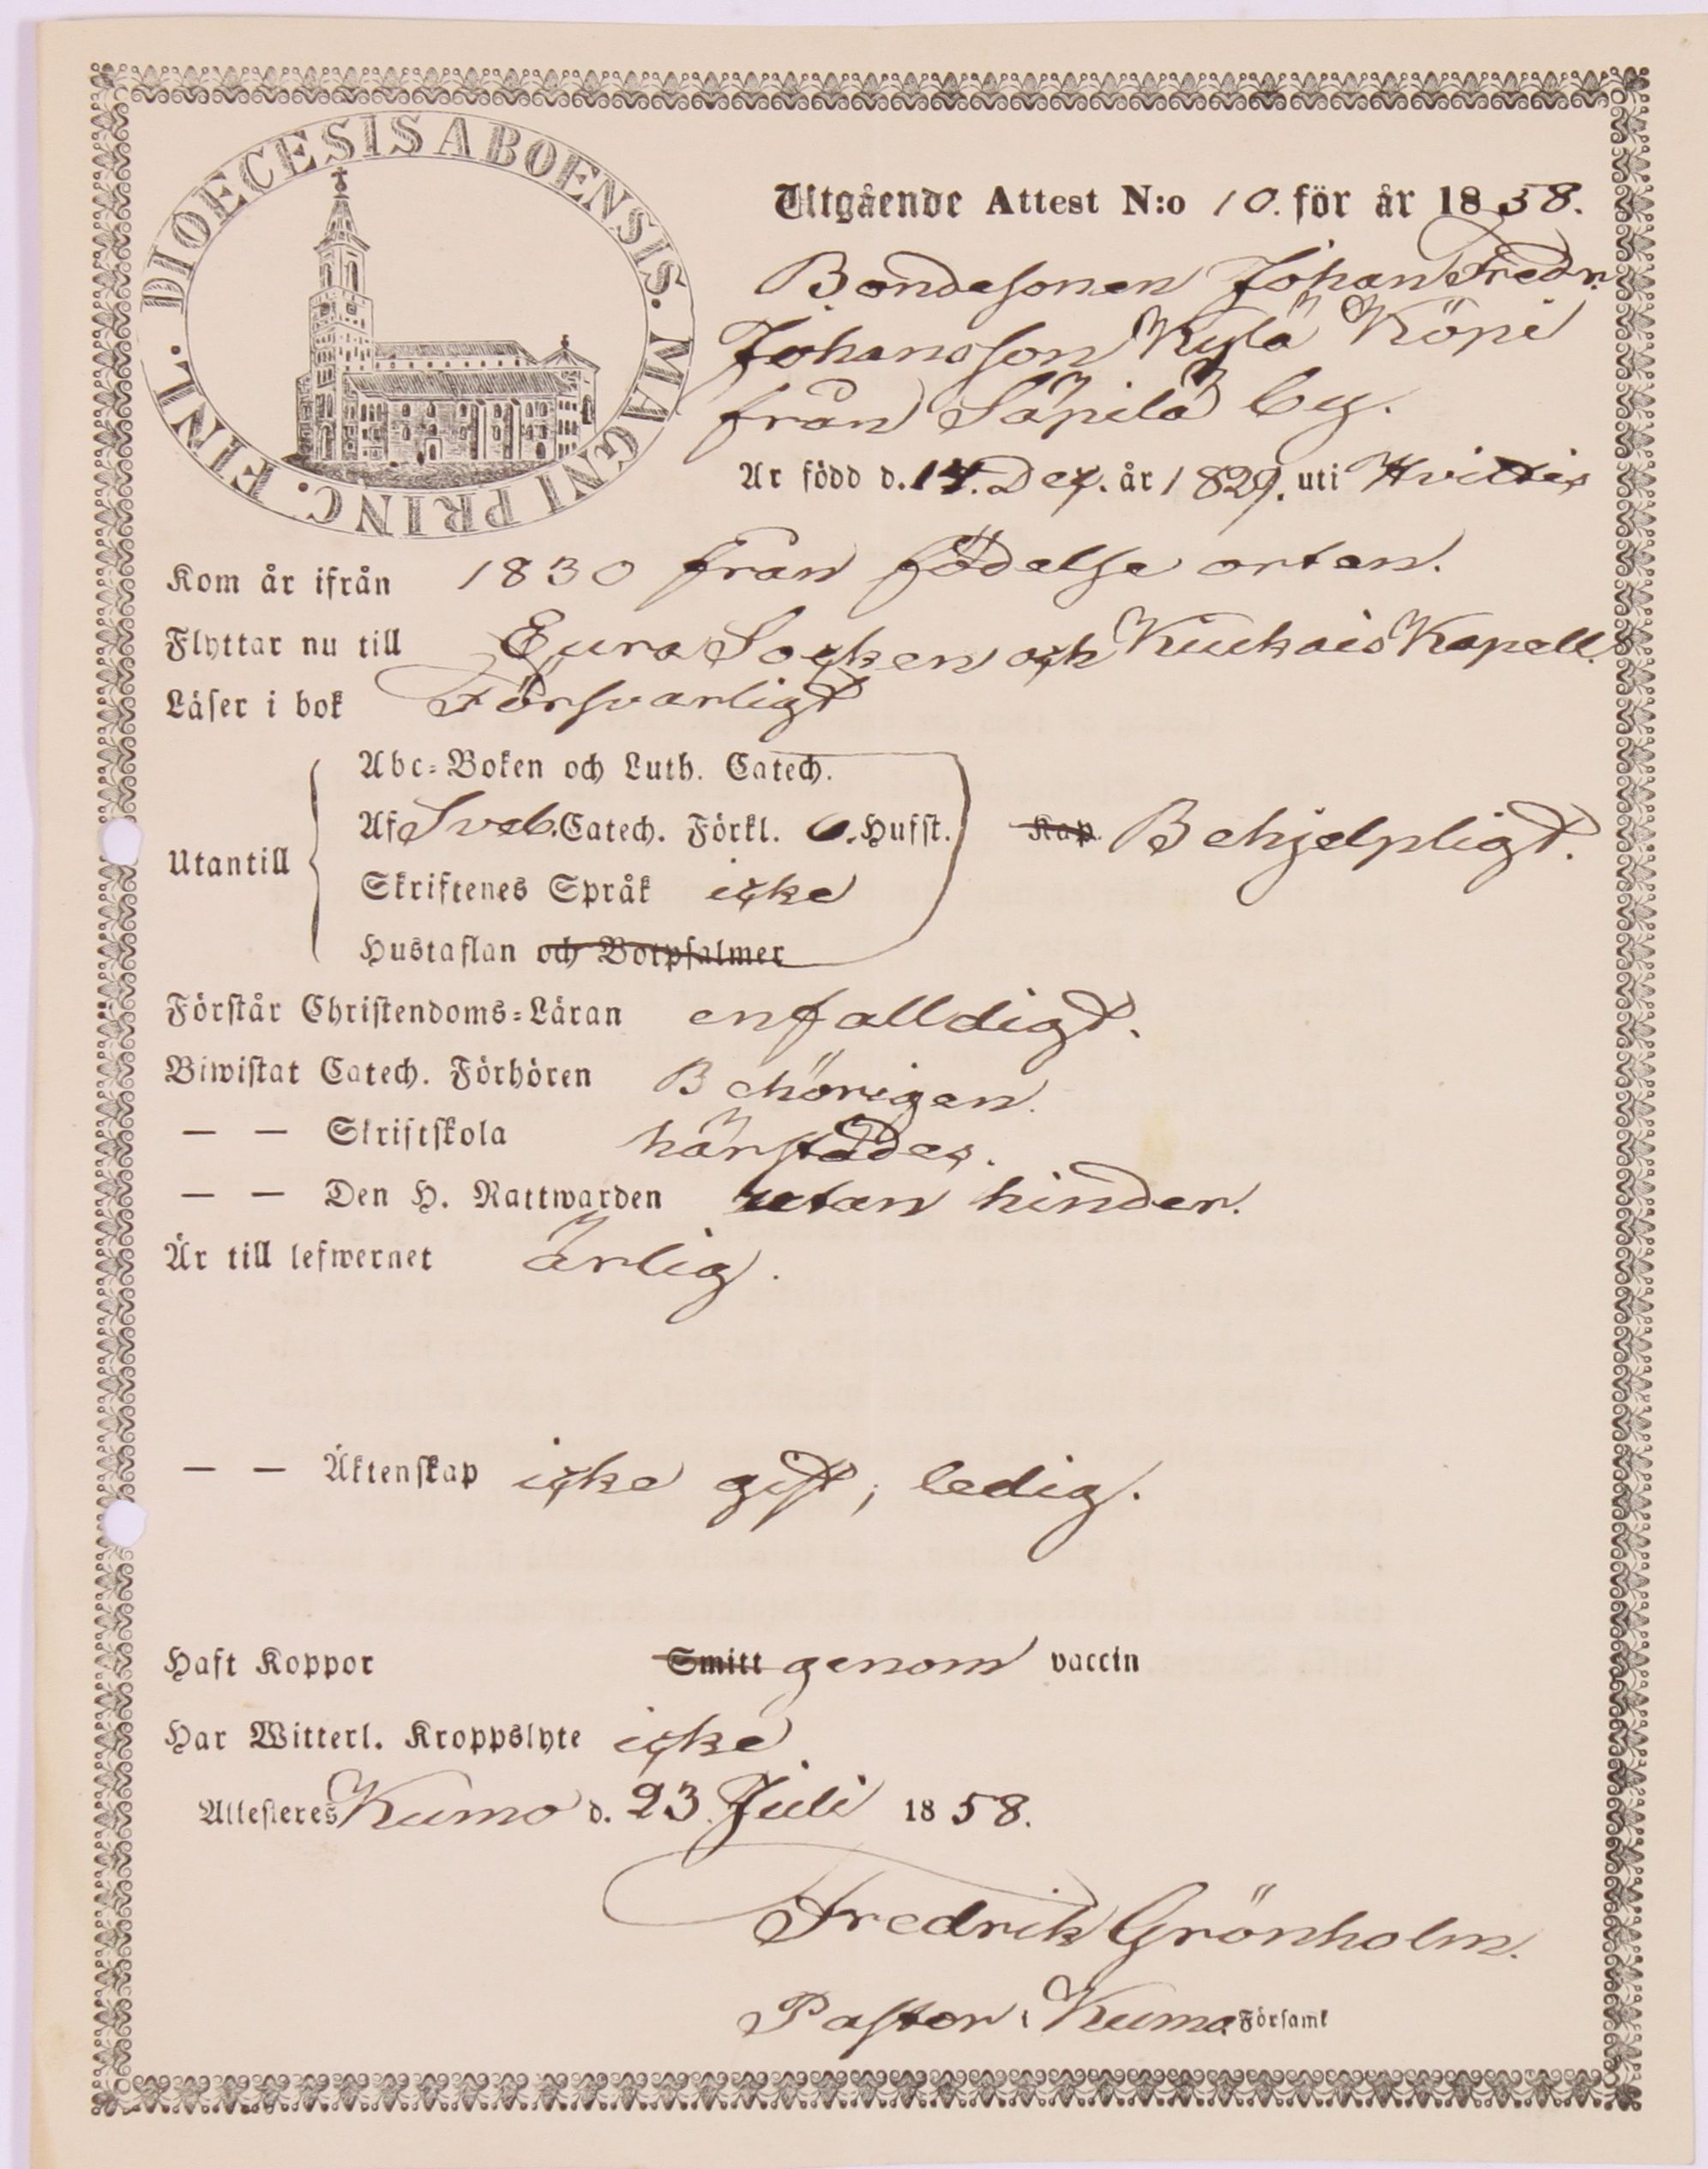 DIOECESIS ABOENSIS. MAGNI PRINC. FINL.
Utgående Attest N:o 10. för år 1858.
Bondesonen Johan Fredr.
Johansson Kylä Köpi
från Säpilä by.
Är född d. 14. Dec. år 1829. uti Hvittis
Kom år ifrån 1830 från födelse orten.
Flyttar nu till Eura Socken och Kiukais Kapell.
Läser i bok Försvarligt
Abc-Boken och Luth. Catech.
Af Sveb. Catech. Förkl. 6. Hufst. Kap. Behjelpligt.
Utantill
Skriftenes Språk icke
Hustaflan och Botpsalmer
Förstår Christendoms-Läran enfalldigt.
Biwistat Catech. Förhören Behörigen.
— — Skriftskola härstädes.
— — Den H. Nattwarden utan hinder.
Är till lefwernet ärlig.
— — Äktenskap icke gift, ledig.
Haft Koppor Smitt genom vaccin
Har Witterl. Kroppslyte icke
Attesteres Kumo d. 23. Juli 1858.
Fredrik Grönholm.
Pastor i Kumo Församl